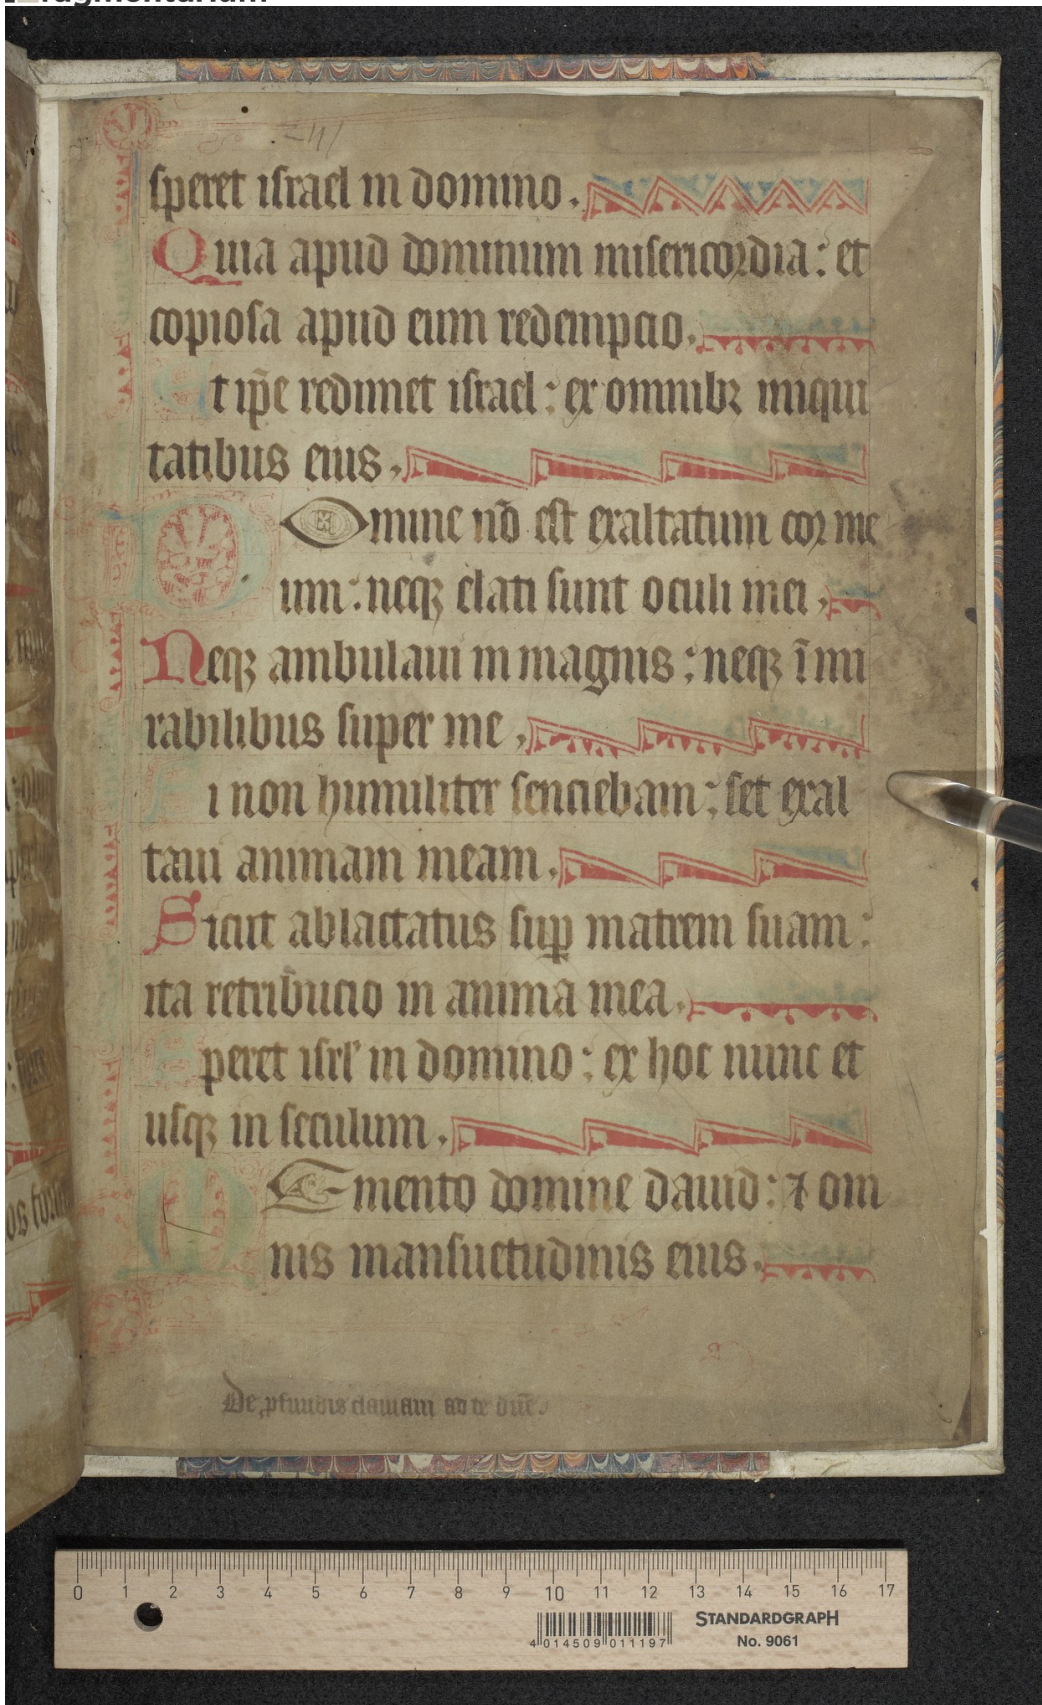 Fragmentarium
speret israel in domino.
Quia apud dominum misericordia: et
copiosa apud eum redempcio.
Et ip̄e redimet israel: ex omnibꝫ iniqui
tatibus eius.
DOmine nō est exaltatum cor me
um: neqꝫ elati sunt oculi mei.
Neqꝫ ambulaui in magnis: neqꝫ ī mi
rabilibus super me.
Si non humiliter senciebam: set exal
taui animam meam.
Sicut ablactatus suꝑ matrem suam:
ita retribucio in anima mea.
Speret isrł in domino: ex hoc nunc et
usqꝫ in seculum.
MEmento domine dauid: ⁊ om
nis mansuetudinis eius.
De ꝓfundis clamaui ad te dn̄e.
0 1 2 3 4 5 6 7 8 9 10 11 12 13 14 15 16 17
STANDARDGRAPH
4 014509 011197
No. 9061